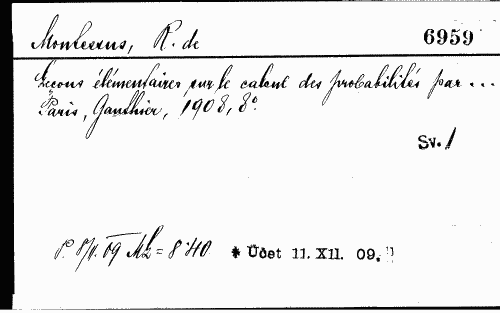 Montessus, R. de 6959
Leçons élémentaires sur le calcul des probabilités par ...
Paris, Gauthier, 1908, 8°.
Sv. 1
09 = 8·40 * Üdet 11. XII. 09.